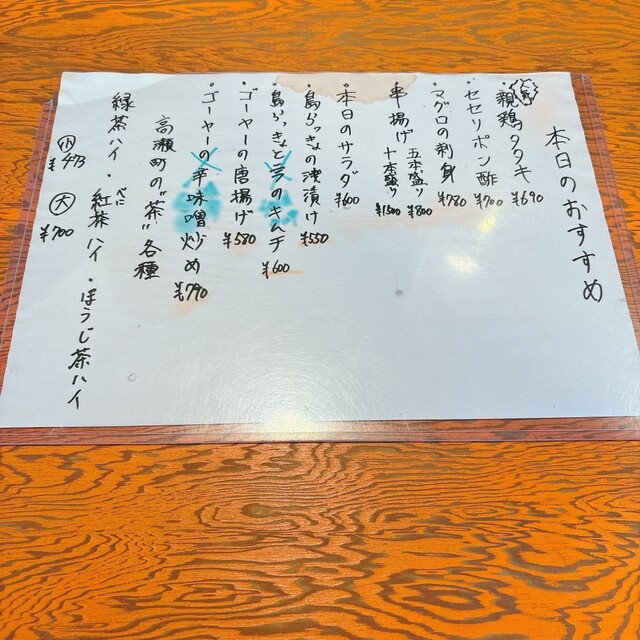 本日のおすすめ
・親鶏タタキ ¥690
・セセリポン酢 ¥700
・マグロの刺身 ¥780
・串揚げ 五本盛り ¥800
十本盛り ¥1500
・本日のサラダ ¥600
・島らっきょの浅漬け ¥550
・島らっきょとラフのキムチ ¥600
・ゴーヤーの唐揚げ ¥580
・ゴーヤーの辛味噌炒め ¥790
高瀬町の"茶"各種
緑茶ハイ・紅茶ハイ・ほうじ茶ハイ
べに
小 ¥473 大 ¥700